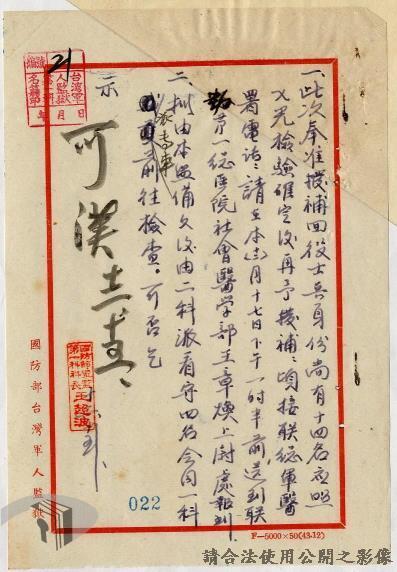 一、此次奉准撥補回役士兵身份尚有十四名应照
X光檢驗確定後再予撥補、頃接联總軍醫
署電話、請在本(三)月十七日下午一时半前送到联
勤第一總医院社會醫学部王章煥上尉處報到、
二、擬由本監備文後由二科派看守四名会同一科
派專車
前往檢查。可否乞
示
可 漢 十五
國防部台灣軍人監獄
第一科科長 王超凌
台灣軍人監獄
年 月 日
21
022
F—5000×50(43.12)
請合法使用公開之影像